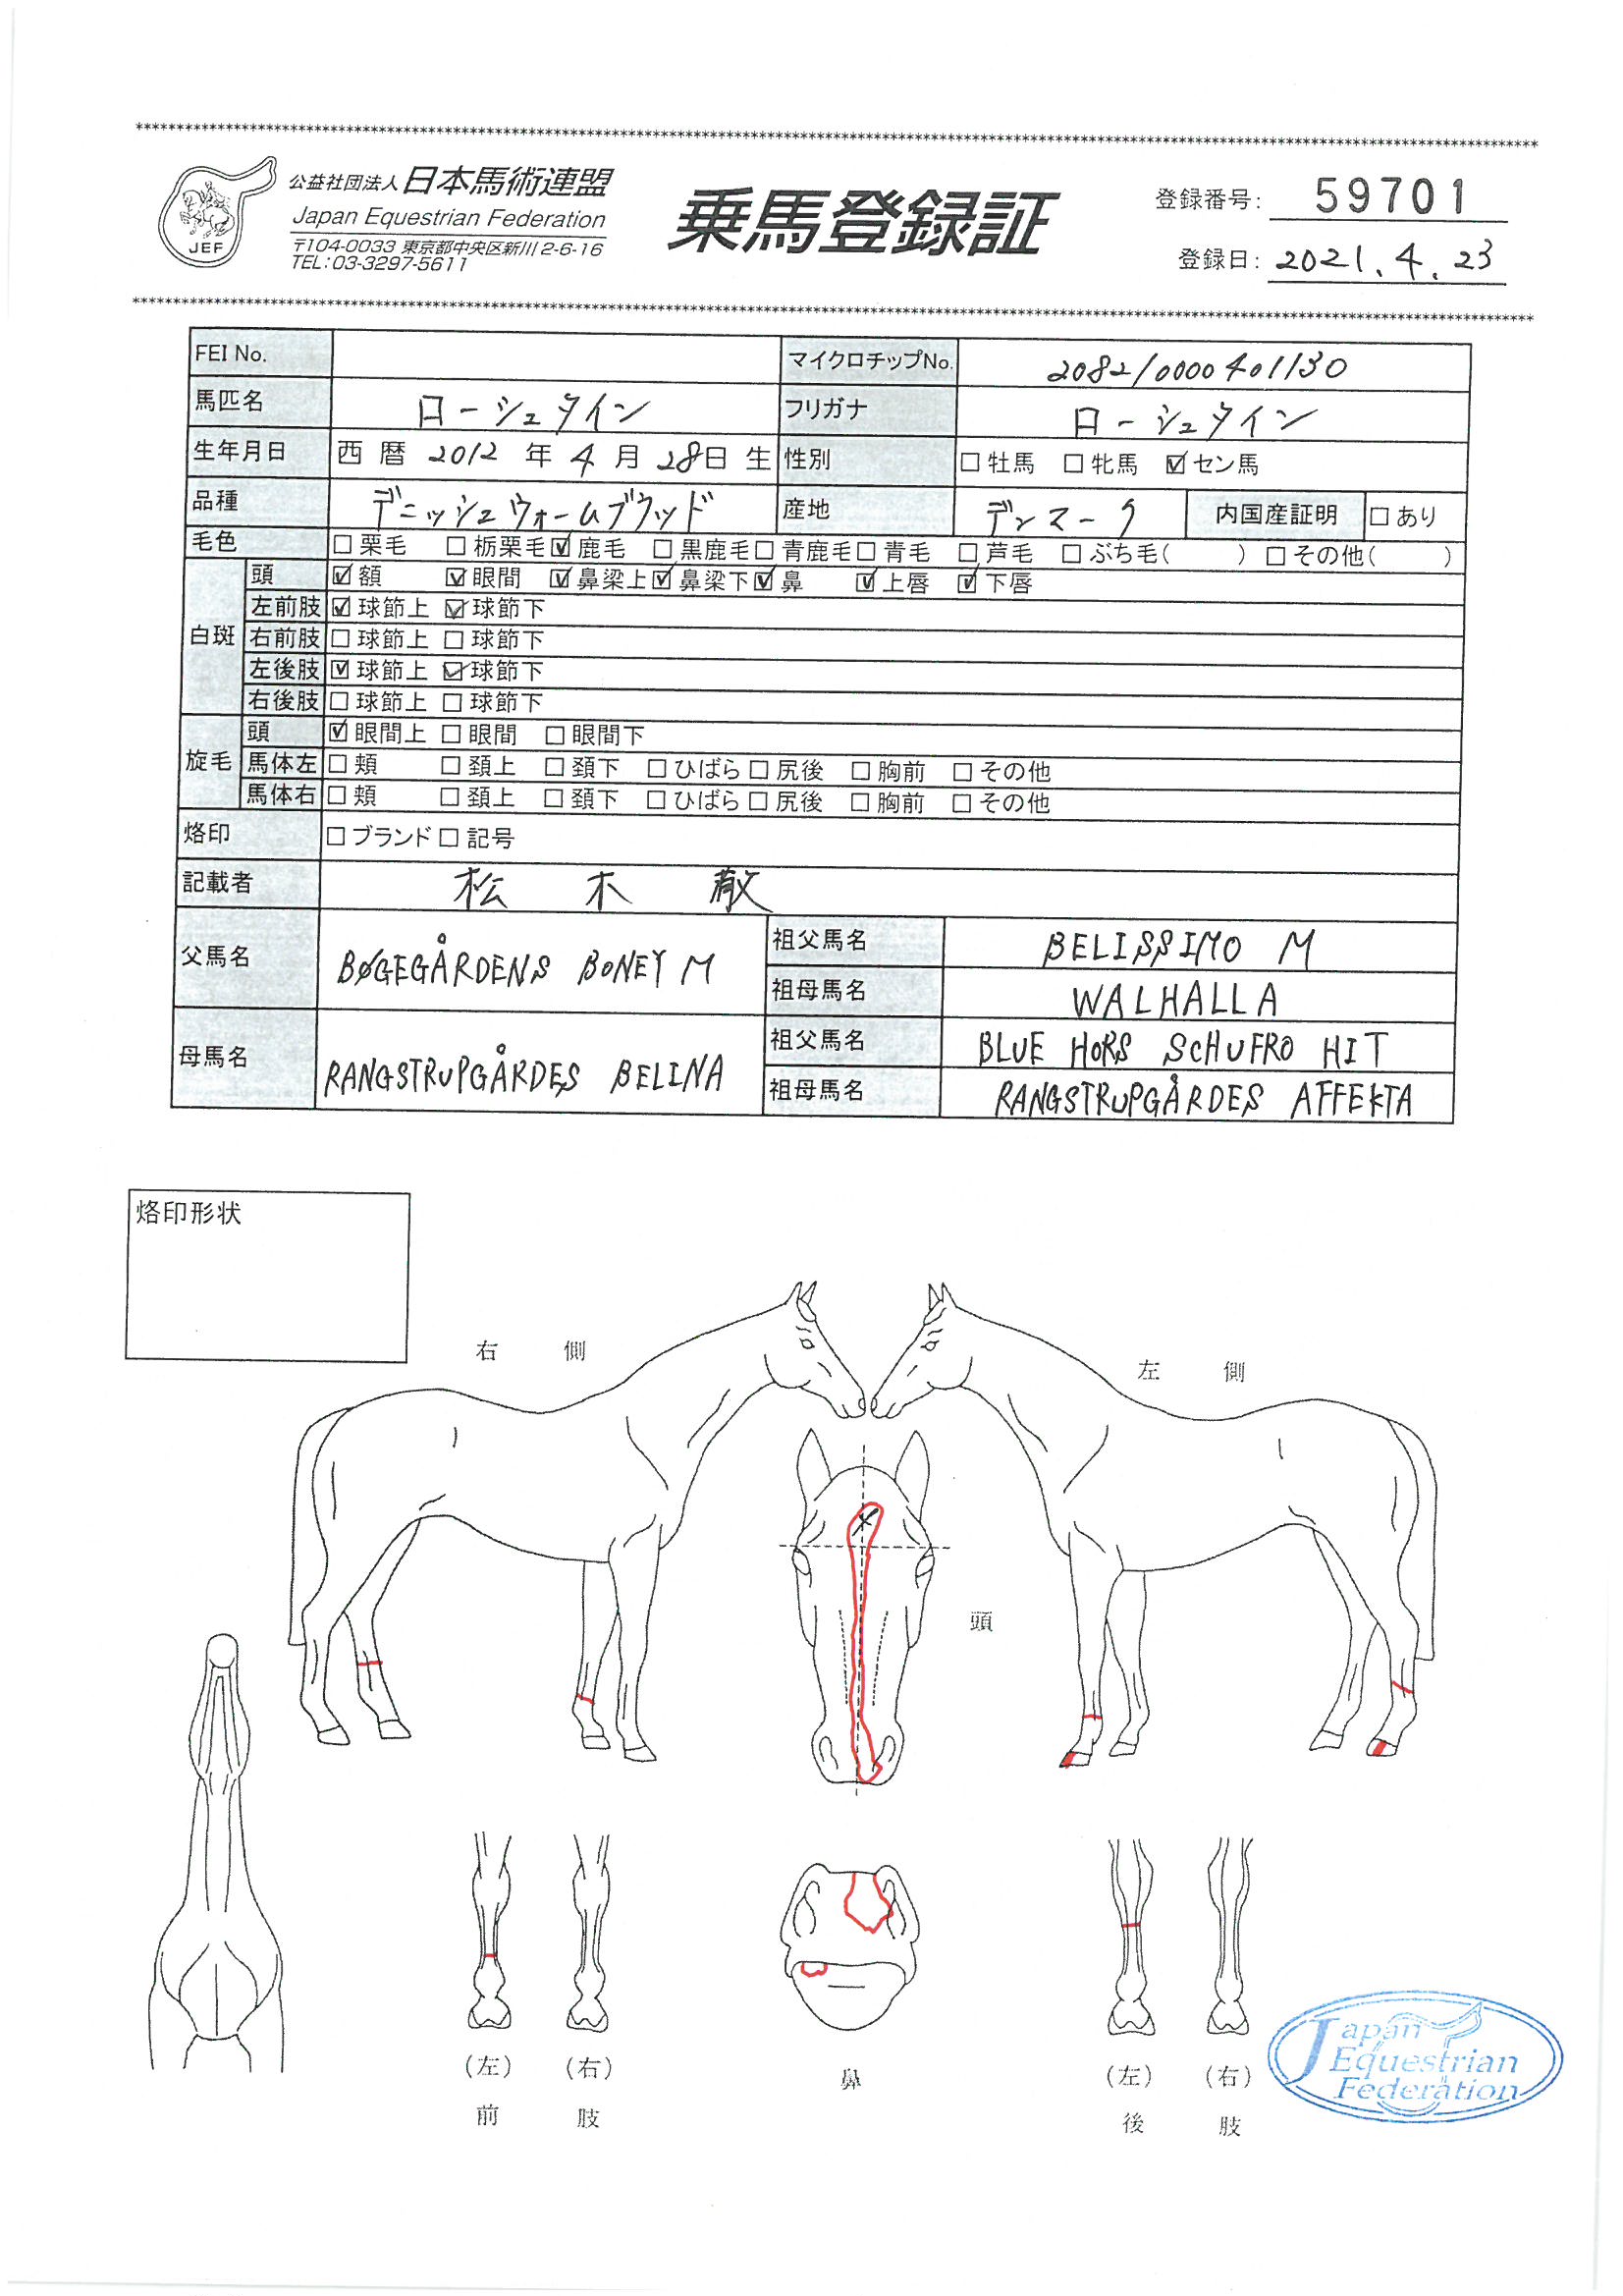 公益社団法人 日本馬術連盟
Japan Equestrian Federation
〒104-0033 東京都中央区新川2-6-16
TEL:03-3297-5611
JEF
乗馬登録証
登録番号: 59701
登録日: 2021.4.23
FEI No. マイクロチップNo. 208210000401130
馬匹名 ローシュタイン フリガナ ローシュタイン
生年月日 西暦 2012 年 4 月 28日 生 性別 □ 牡馬 □ 牝馬 ☑ セン馬
品種 デニッシュウォームブラッド 産地 デンマーク 内国産証明 □ あり
毛色 □ 栗毛 □ 栃栗毛 ☑ 鹿毛 □ 黒鹿毛 □ 青鹿毛 □ 青毛 □ 芦毛 □ ぶち毛( ) □ その他( )
白斑
頭 ☑ 額 ☑ 眼間 ☑ 鼻梁上 ☑ 鼻梁下 ☑ 鼻 ☑ 上唇 ☑ 下唇
左前肢 ☑ 球節上 ☑ 球節下
右前肢 □ 球節上 □ 球節下
左後肢 ☑ 球節上 ☑ 球節下
右後肢 □ 球節上 □ 球節下
旋毛
頭 ☑ 眼間上 □ 眼間 □ 眼間下
馬体左 □ 頬 □ 頚上 □ 頚下 □ ひばら □ 尻後 □ 胸前 □ その他
馬体右 □ 頬 □ 頚上 □ 頚下 □ ひばら □ 尻後 □ 胸前 □ その他
烙印 □ ブランド □ 記号
記載者 松 木
父馬名 BØGEGÅRDENS BONEY M
祖父馬名 BELISSIMO M
祖母馬名 WALHALLA
母馬名 RANGSTRUPGÅRDES BELINA
祖父馬名 BLUE HORS SCHUFRO HIT
祖母馬名 RANGSTRUPGÅRDES AFFEKTA
烙印形状
右 側
左 側
頭
(左) (右)
前 肢
鼻
(左) (右)
後 肢
Japan
Equestrian
Federation